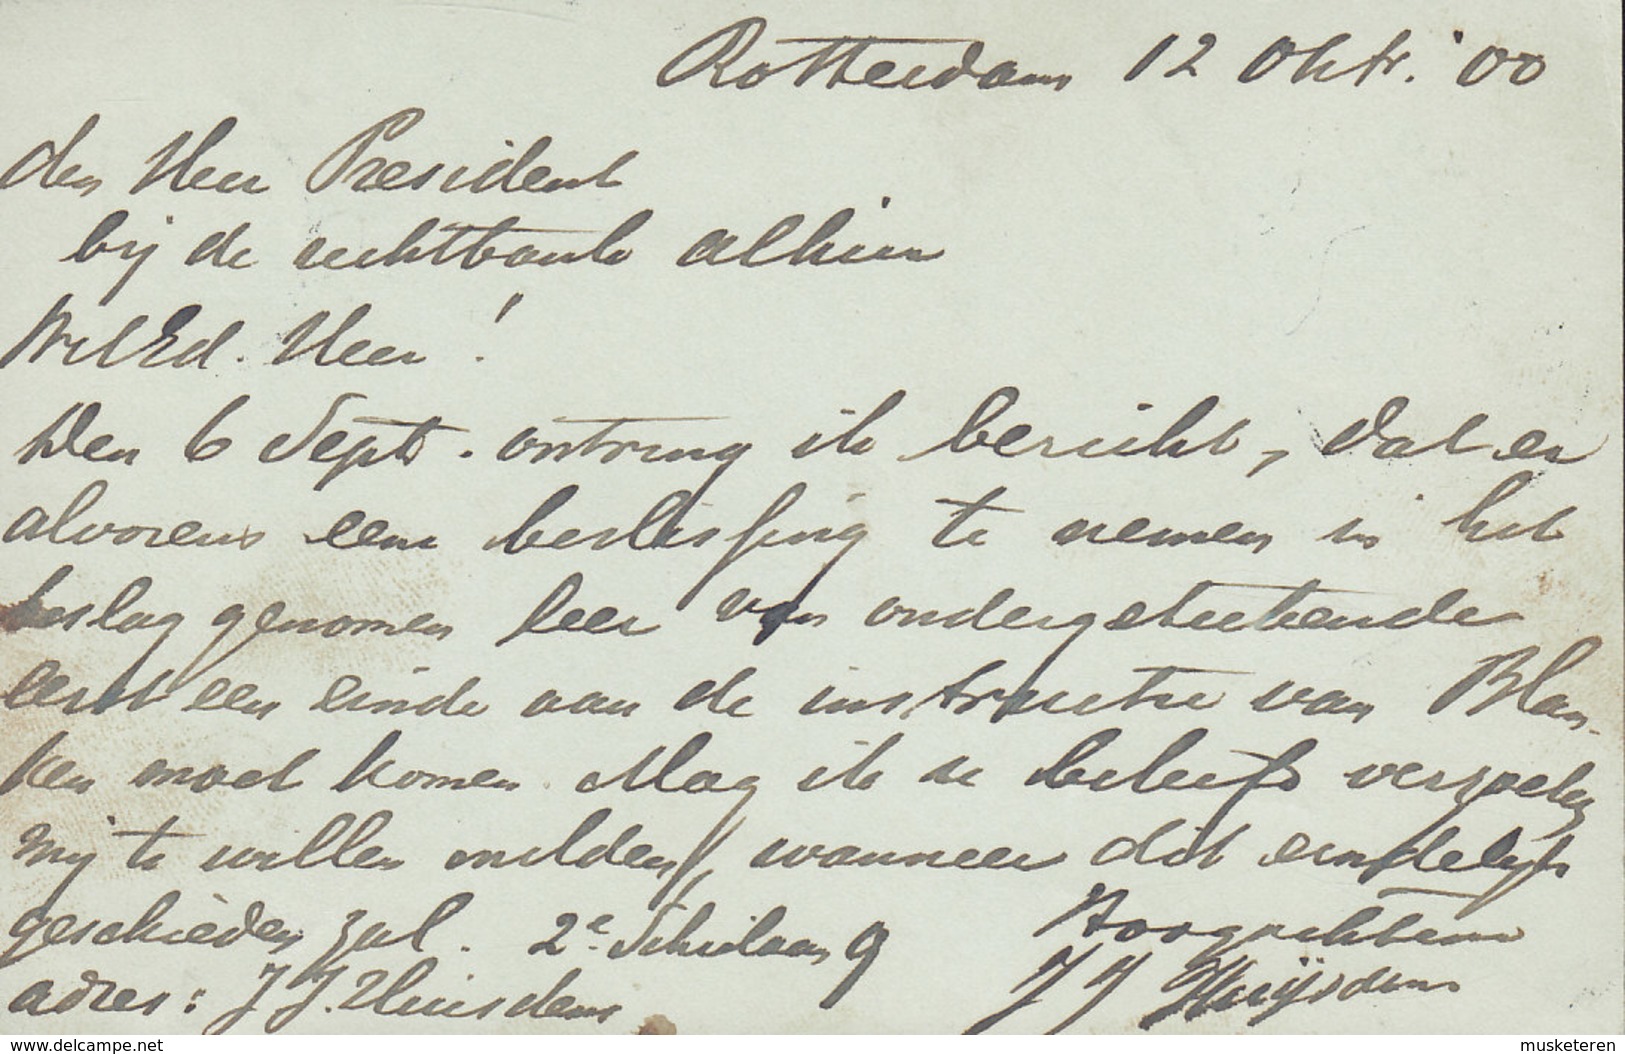 Rotterdam 12 Oktr. '00
den Heer President
bij de rechtbank alhier
WelEd. Heer!
Den 6 Sept. ontving ik bericht, dat er
alvorens een beslissing te nemen in het
beslag genomen leer van ondergeteekende
eerst een einde aan de instructie van Blan-
ken moet komen. Mag ik u beleefd verzoeken
mij te willen melden, wanneer dit eindelijk
geschieden zal. 2e Schielaan 9 Hoogachtend
adres: J J. Huisdens J J Huijsdens
delcampe.net musketeren